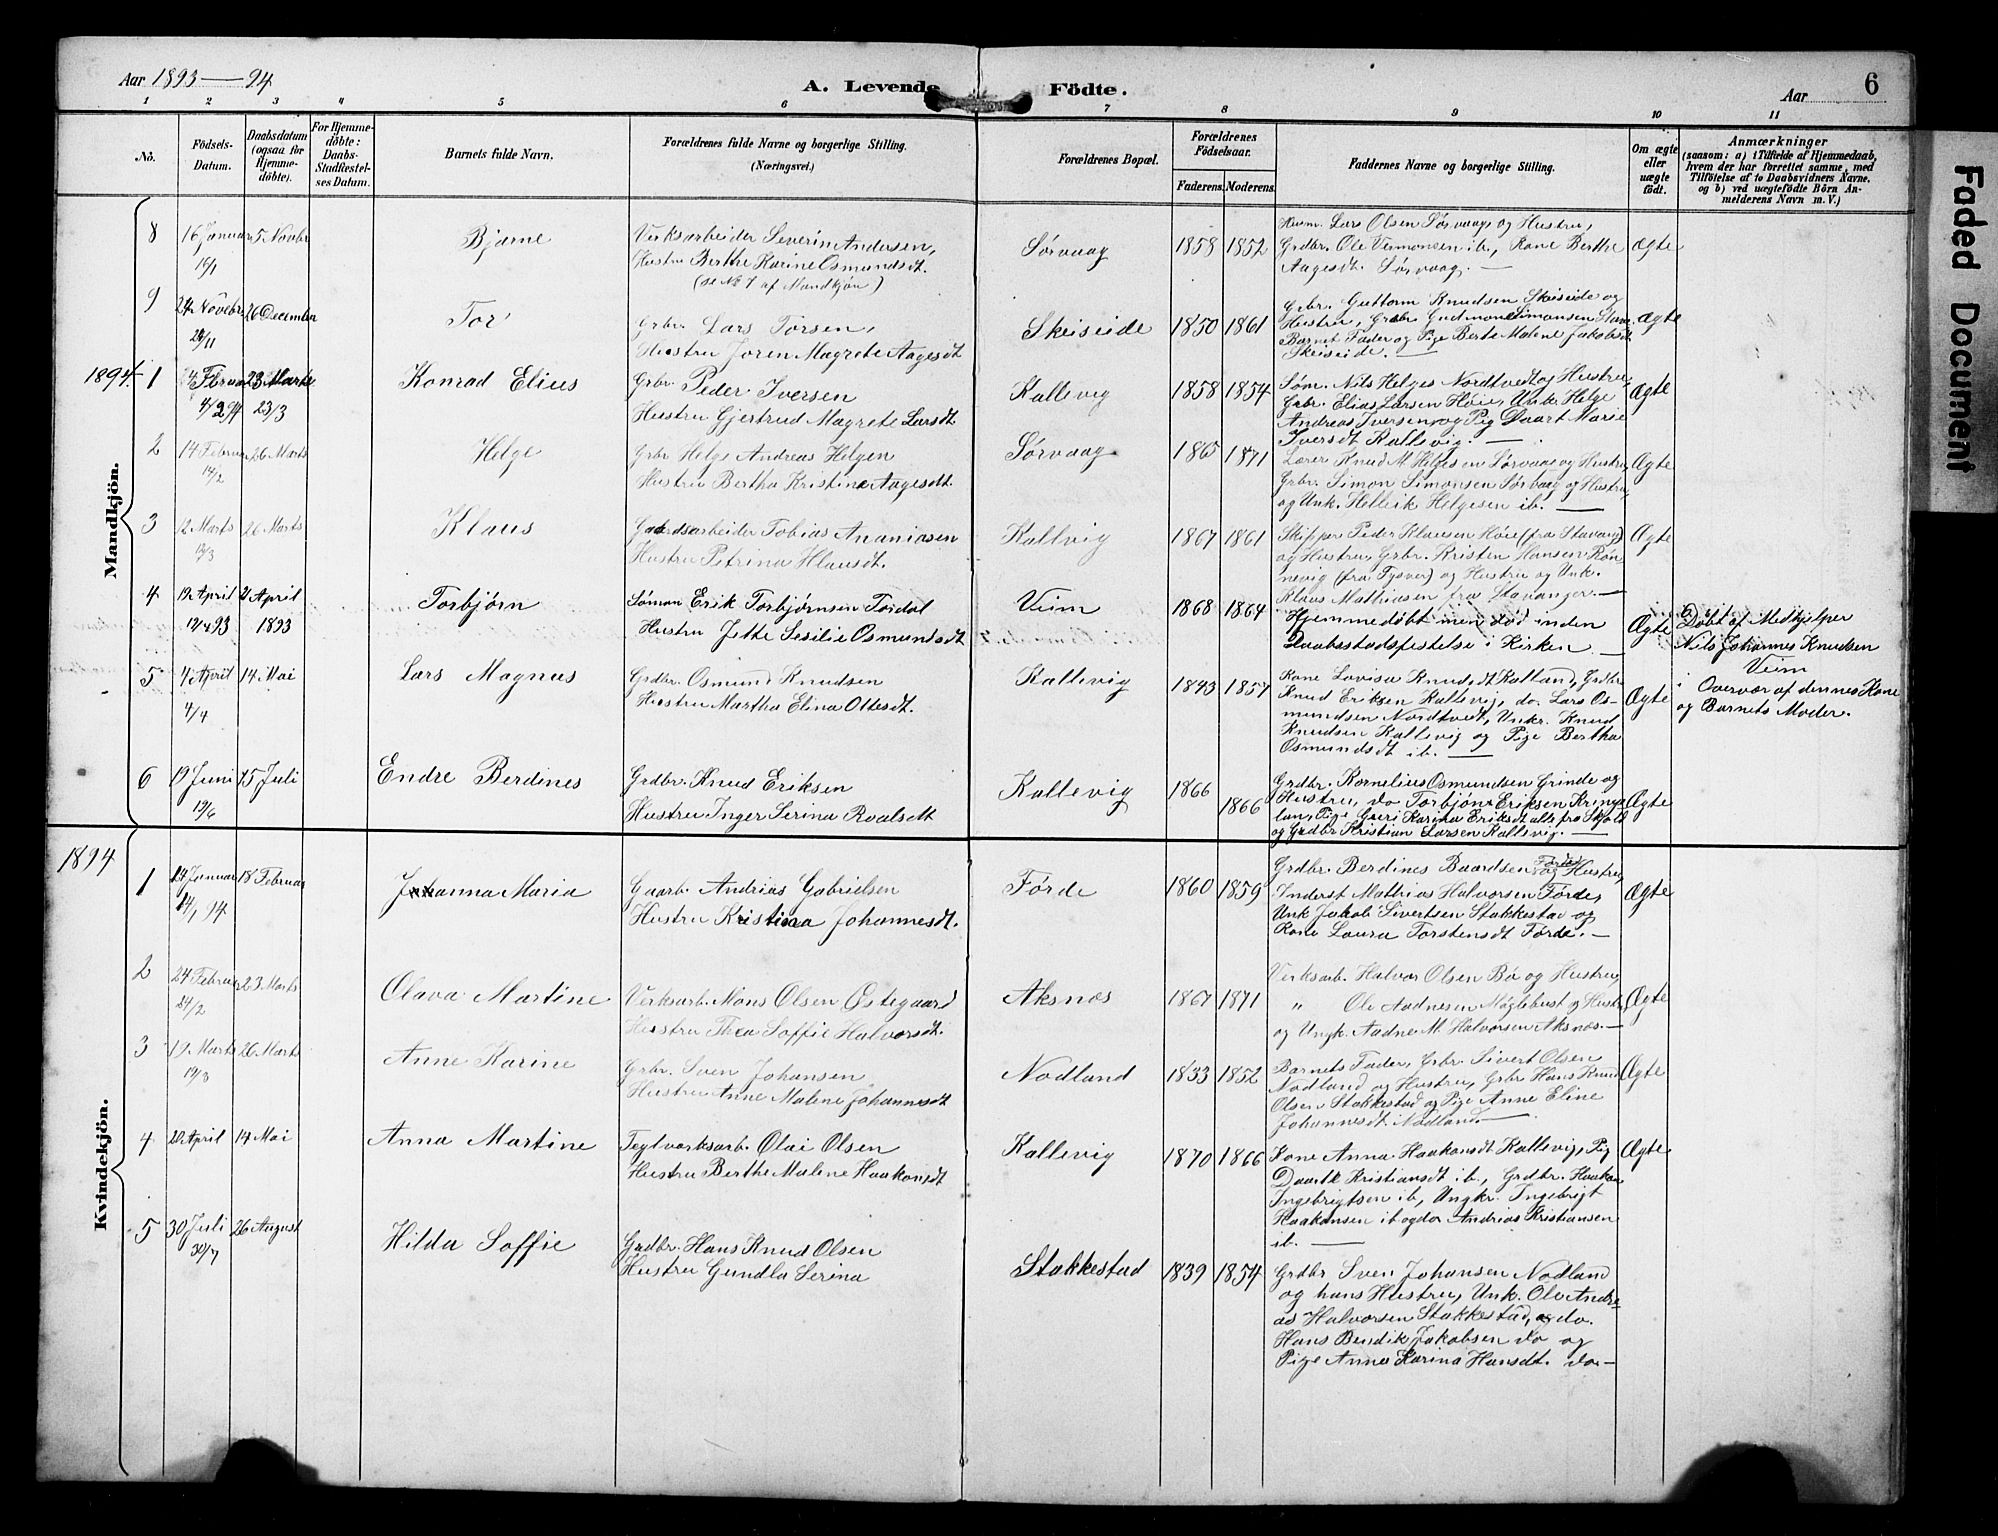 Aar 1893 — 94
A. Levende Födte.
Aar
6
1 2 3 4 5 6 7 8 9 10 11
No.
Födsels-
Datum.
Daabsdatum
(ogsaa for
Hjemme-
döbte).
For Hjemme-
döbte:
Daabs-
Stadfæstel-
ses Datum.
Barnets fulde Navn.
Forældrenes fulde Navne og borgerlige Stilling.
(Næringsvei.)
Forældrenes Bopæl.
Forældrenes
Födselsaar.
Faderens. Moderens.
Faddernes Navne og borgerlige Stilling.
Om ægte
eller
uægte
födt.
Anmærkninger
(saasom: a) i Tilfælde af Hjemmedaab,
hvem der har forrettet samme, med
Tilföielse af to Daabsvidners Navne.
og b) ved uægtefödte Börn An-
melderens Navn m. V.)
Faded Document
Mandkjön.
8 16 Januar 5 Novebr Bjarne
16/1
Verksarbeider Severin Andersen,
Hustru Berthe Karine Osmundsdt.
(se No 7 af Mandkjøn)
Sørvaag 1858 1852
Lars Olsen Sørvaag og Hustru,
Grdbr. Ole Vermonsen ib., Kone Berthe
Aagesdt. Sørvaag. —
Ægte
9 24 Novebr 26 December Tor
24/11
Grbr. Lars Torsen,
Hustru Joren Magrete Aagesdt
Skeiseide 1850 1861
Grbr. Guttorm Knudsen Skeiseide og
Hustru, Grbr Gudmon Simonsen
Barnet Fader og Pige Berte Malene Jakobsdt
Skeiseide. —
Ægte
1894 1 4 Februar 23 Marts Konrad Elius
4/2 94 23/3
Grbr. Peder Iversen
Hustru Gjertrud Magrete Larsdt
Kallevig 1858 1854
Søm. Nils Helges Nordtvedt og Hustru,
Grbr. Elias Larsen Høie, Unk. Helge
Andreas Iversen og Pig Daart Marie
Iversdt Kallevig. —
Ægte
2 14 Februar 26 Marts Helge
14/2
Grbr Helge Andreas Helgen
Hustru Bertha Kristine Aagesdt.
Sørvaag 1865 1871
Lærer Knud M Helgesen Sørvaag og Hustru,
Grbr. Simon Simonsen Sørvaag og Hustru,
og Unk. Helleik Helgesen ib. —
Ægte
3 12 Marts 26 Marts Klaus
12/3
Gaardsarbeider Tobias Ananiasen
Hustru Petrina Klausdt.
Kallvig 1867 1861
Skipper Peder Klausen Høie (fra Stavang)
og Hustru, Grbr. Kristen Hansen Røn-
nevig (fra Tysver) og Hustru og Unk.
Klaus Mathiasen fra Stavanger. —
Ægte
4 19 April 21 April Torbjørn
19/4 93 1893
Sømon Erik Torbjørnsen Tordal
Hustru Jette Sesilie Osmundsdt
Veim 1868 1864
Hjemmedøbt men død inden
Daabsstadfestelse i Kirken —
Ægte
Døbt af Medhjelper
Nils Johannes Knudsen
Veim
i Overvær af dennes Kone
og Barnets Moder.
5 4 April 14 Mai Lars Magnus
4/4
Grdbr. Osmund Knudsen
Hustru Martha Elina Ottesdt.
Kallevig 1843 1857
Kone Lovisa Knudsdt Kalland, Grdbr
Knud Eriksen Kallevig, do. Lars Os-
mundsen Nordtvedt, Unkr. Knud
Knudsen Kallevig og Pige Bertha
Osmundsdt ib. —
Ægte
6 19 Juni 15 Juli Endre Berdines
19/6
Grdbr. Knud Eriksen
Hustru Inger Serina Roalsdt
Kallevig 1866 1866
Grdbr. Kornelius Osmundsen Grinde og
Hustru, do Torbjørn Eriksen Kringe-
lan, Pige Guri Karina Eriksdt alle fra Skjold
og Grdbr Kristian Larsen Kallevig. —
Ægte
1894
Kvindekjön.
1 24 Januar 18 Februar Johanna Maria
24/1 94
Gaarb. Andrias Gabrielsen
Hustru Kristina Johannesdt.
Förde 1860 1859
Grdbr. Berdines Baardsen Förde og Hustru,
Inderst Mathias Halvorsen Förde,
Unk Jakob Sivertsen Stakkestad og
Kone Laura Torstensdt Förde. —
Ægte
2 24 Februar 23 Marts Olava Martine
24/2
Verksarb. Mons Olsen Østegaard
Hustru Thea Soffie Halvorsdt.
Aksnæs 1867 1871
Verksarb. Halvor Olsen Bø og Hustru,
" Ole Aadnesen Møglebust og Hustr
og Ungk. Aadne M. Halvorsen Aksnæs. —
Ægte
3 19 Marts 26 Marts Anne Karine
19/3
Grbr. Sven Johansen
Hustru Anne Malene Johannesdt
Nodland 1833 1852
Barnets Fader, Grbr. Sivert Olsen
Nodland og Hustru, Grbr Hans Knud
Olsen Stakkestad og Pige Anne Eline
Johannesdt. Nodland. —
Ægte
4 20 April 14 Mai Anna Martine
Teglværksarb. Olai Olsen
Hustru Berthe Malene Haakonsdt
Kallevig 1870 1866
Kone Anna Haakonsdt Kallevig, Pig
Daarte Kristiansdt ib., Grdbr. Haakon
Ingebrigtsen ib, Ungkr. Ingebrigt
Haakonsen ib og do Andrias Kristiansen
ib. —
Ægte
5 30 Juli 26 August Hilda Soffie
30/7
Grdbr. Hans Knud Olsen
Hustru Gundla Serina
Stakkestad 1839 1854
Grdbr Sven Johansen Nodland
og hans Hustru, Unk. Ole Andre-
as Halvorsen Stakkestad, og do.
Hans Bendik Jakobsen do og
Pige Anna Karina Hansdt. do —